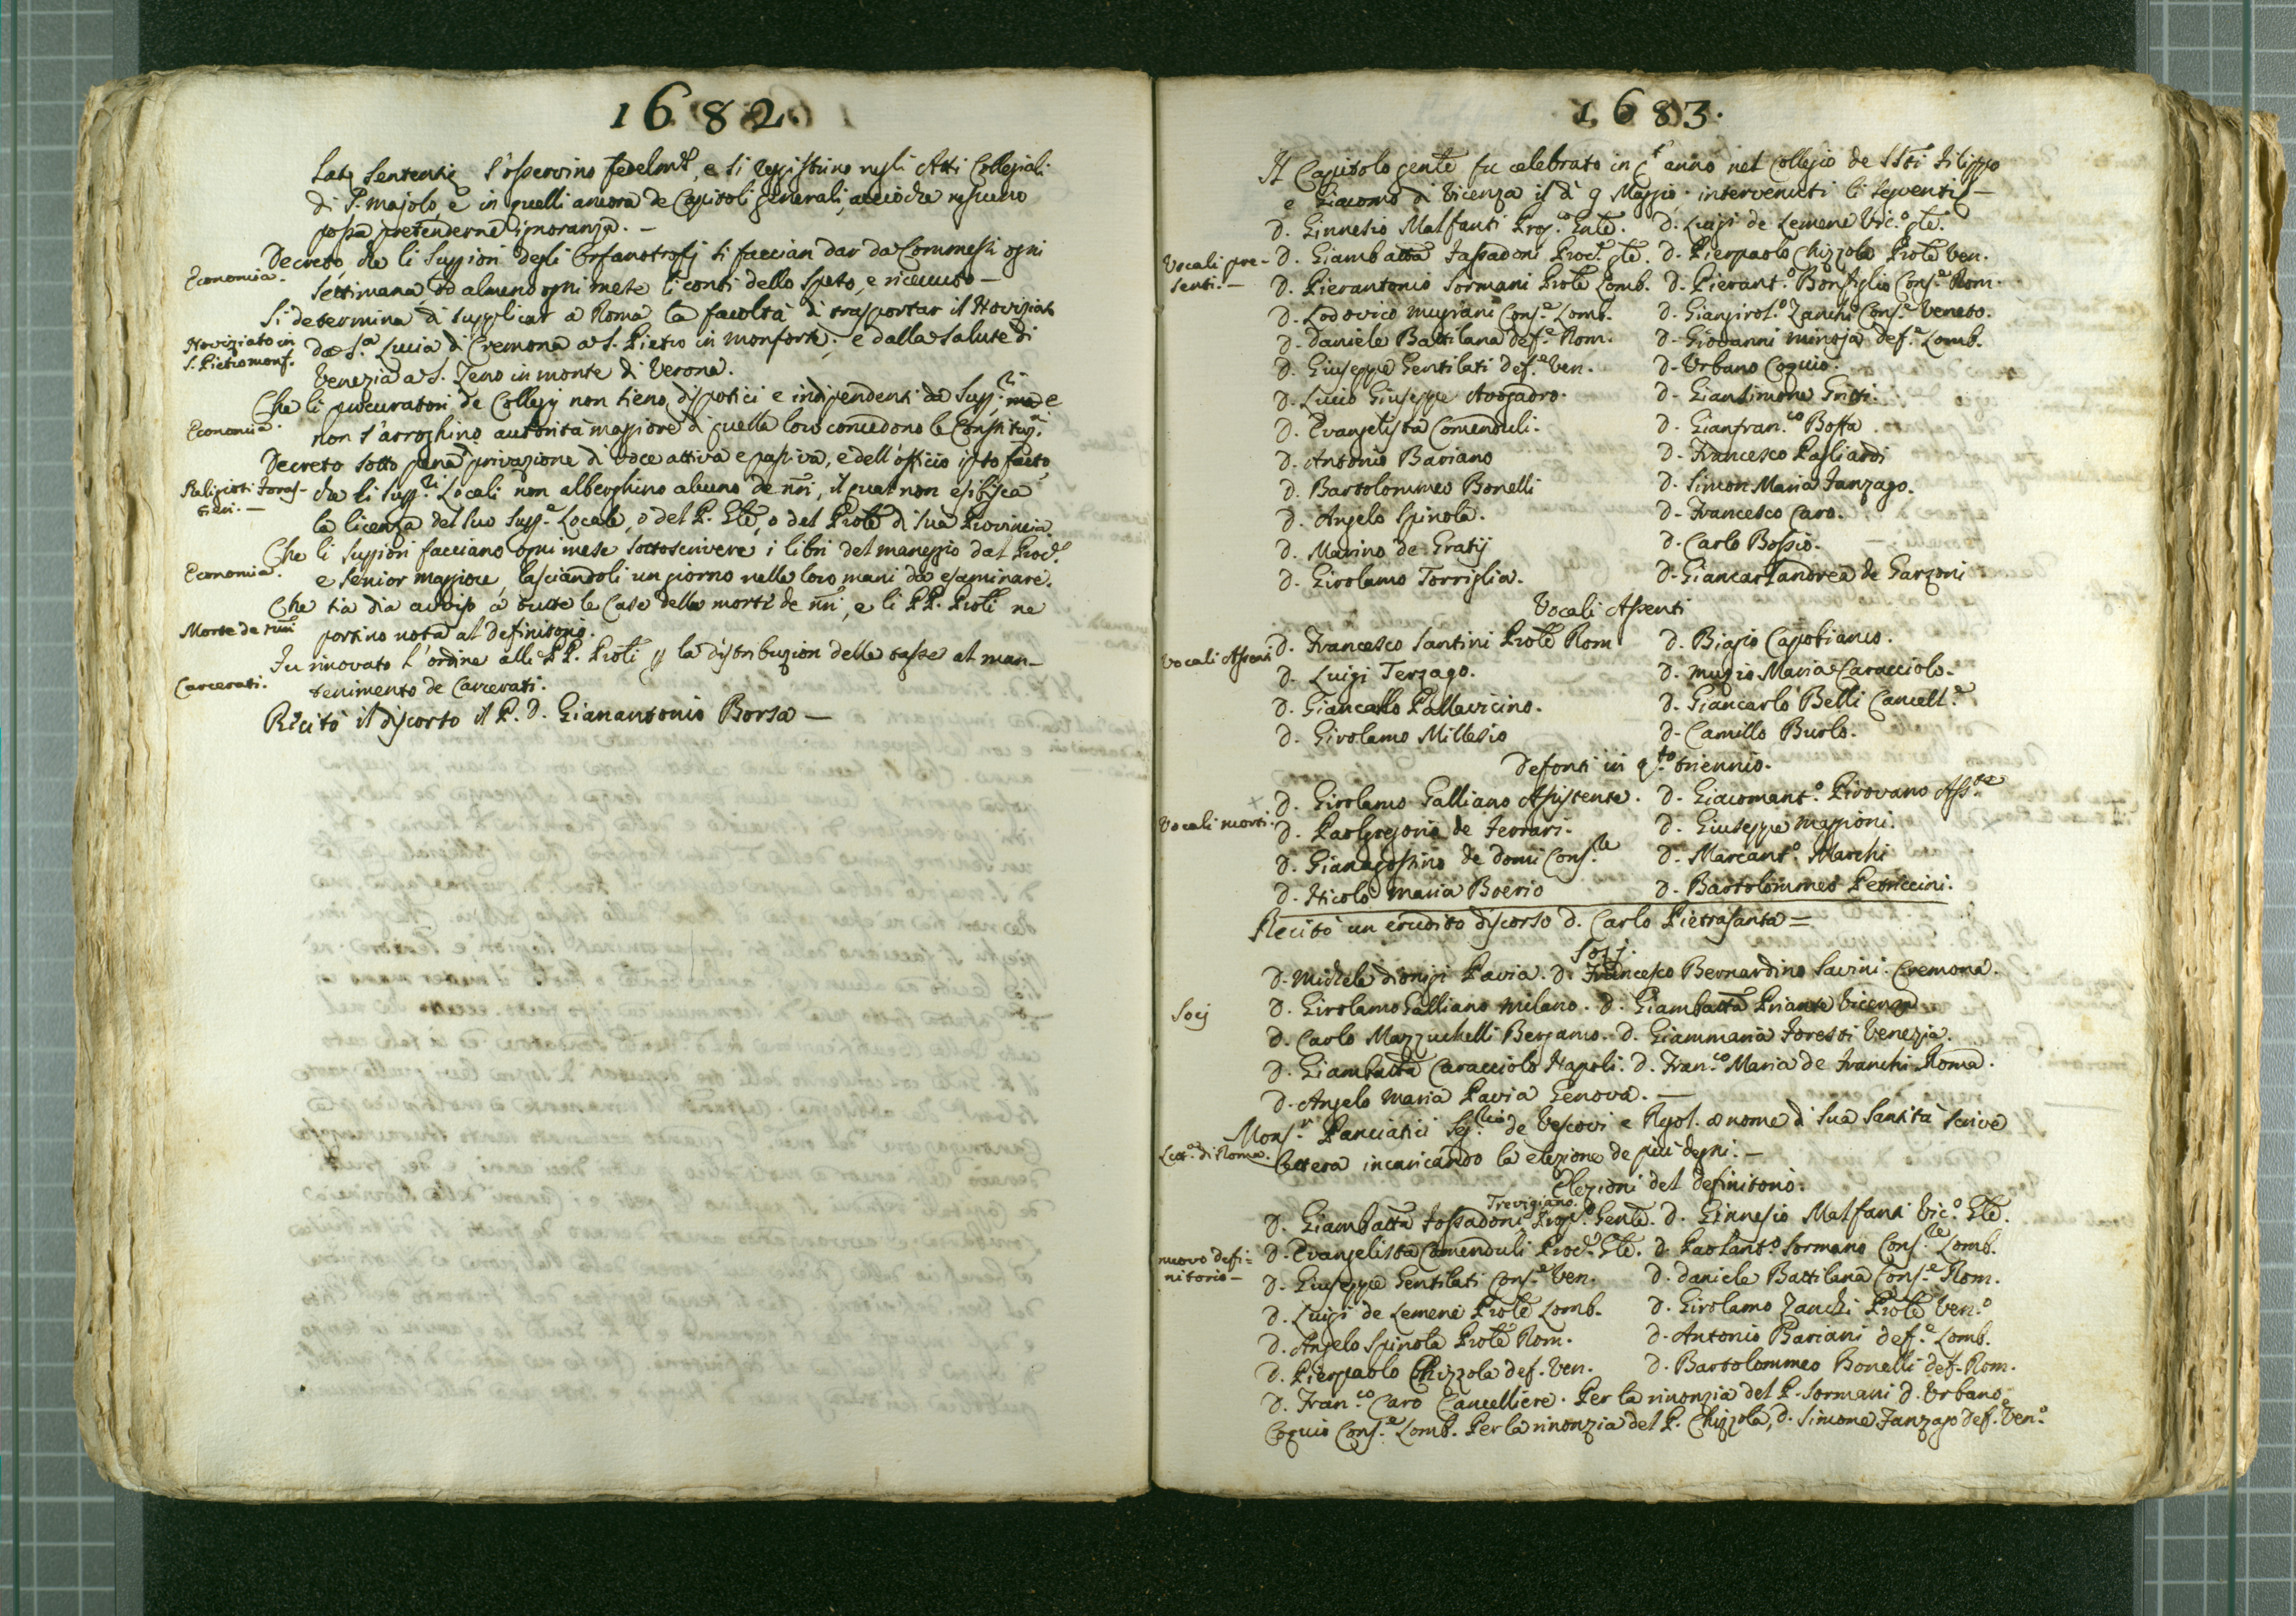 1682.
latę sententię s'osservino fedelmte, e si registrino negli Atti Collegiali
di S. Majolo, e in quelli ancora de Capitoli generali, acciòche nessuno
possa pretenderne ignoranza. —
Economia.
Decreto che li Suppiori degli Orfanotrofj si faccian dar da Commessi ogni
settimana, od almeno ogni mese li conti dello speso, e ricevuto —
Noviziato in
S. Pietro monf.
Si determina di supplicar a Roma la facoltà di trasportar il Noviziato
da S.a Lucia di Cremona a S. Pietro in monforte; e dalla Salute di
Venezia a S. Zeno in monte di Verona.
Economia.
Che li procuratori de Collegj non sieno dispotici e indipendenti da Supp.ri e
non s'arroghino autorità maggiore di quella loro concedono le Constituz.ni
Religiosi Forastieri. —
Decreto sotto pena privazione di voce attiva e passiva, e dell'officio ipso facto
che li Supp.ri Locali non alberghino alcuno de nri, il qual non esibisca
la licenza del suo Supp.e Locale, o del P. Gle, o del Prole di sua Provincia
Economia.
Che li Suppiori facciano ogni mese sottoscrivere i libri del maneggio dal Proc.e
e senior maggiore, lasciandoli un giorno nelle loro mani da esaminare.
Morte de nri
Che sia dia avviso a tutte le Case della morte de nri, e li PP. Proli ne
portino nota al definitorio.
Carcerati.
Fu rinovato l'ordine alli PP. Proli p la distribuzion delle tasse al man-
tenimento de Carcerati.
Recitò il discorso il P. D. Gianantonio Borsa —
1683.
Il Capitolo gente fu celebrato in qt anno nel Collegio de SSti Filippo
e Giacomo di Vicenza il dì 9 Maggio. intervenuti li seguenti —
D. Ginnesio Malfanti Prep.o Gnle. D. Luigi de Lemene Vic.o gle.
Vocali pre-
senti. —
D. Giambatta Fassadoni Proc.e gle. D. Pierpaolo Chizzola Prole Ven.
D. Pierantonio Sormani Prole Lomb. D. Pierant.o Bonfiglio Cons.e Rom.
D. Lodovico mugiani Cons.e Lomb. D. Giangirol.o Zanchi Cons.e Veneto.
D. Daniele Battilana def.e Rom. D. Giovanni minoja def.e Lomb.
D. Giuseppe Gentilati def.e Ven. D. Urbano Coquio.
D. Lucio Giuseppe Avogadro. D. Giansimone Gritti.
D. Evangelista Comenduli. D. Gianfran.co Bossa.
D. Antonio Bariano D. Francesco Pagliardi
D. Bartolommeo Bonelli D. Simon Maria Fanzago.
D. Angelo Spinola. D. Francesco Caro.
D. Marino de Gratij D. Carlo Bossio.
D. Girolamo Torriglia. D. Giancarlandrea de Garzoni
Vocali Assenti
Vocali Assenti
D. Francesco Santini Prole Rom D. Biagio Capobianco.
D. Luigi Terzago. D. muzio Maria Caracciolo.
D. Giancarlo Pallavicino. D. Giancarlo Belli Cancell.e
D. Girolamo Millesio D. Camillo Burlo.
Defonti in q.to triennio.
Vocali morti.
D. Girolamo Galliano Assistente. D. Giacomant.o Pirovano Ass.te
D. Paolgregorio de Ferrari. D. Giuseppe maggioni.
D. Gianagostino de domi Cons.le D. Marcant.o Marchi
D. Nicolò maria Boerio D. Bartolommeo Petriccini.
Recitò un erudito discorso D. Carlo Pietrasanta =
Socj.
Socj
D. Michele Dionigi Pavia. D. Francesco Bernardino Savini. Cremona.
D. Girolamo Galliano milano. D. Giambatta Priante Vicenza
D. Carlo Mazzuchelli Bergamo. D. Giammaria Foresti Venezia.
D. Giambatta Caracciolo Napoli. D. Fran.co Maria de Franchi Roma.
D. Angelo Maria Pavia Genova. —
Lett.a di Roma.
Mons.r Panciatici Seg.rio de Vescovi e Regol. a nome di Sua Santità scrive
lettera incaricando la elezione de più degni. —
Elezioni del definitorio.
Trevigiano.
D. Giambatta Fossadoni Prep.o Gente. D. Ginnesio Malfanti Vic.o Gle.
nuovo defi-
nitorio —
D. Evangelista Comenduli Proc.e Gle. D. Paolant.o Sormano Cons.le Lomb.
D. Giuseppe Gentilati Cons.e Ven. D. Daniele Battilana Cons.e Rom.
D. Luigi de Lemene Prole Lomb. D. Girolamo Zanchi Prole Ven.o
D. Angelo Spinola Prole Rom. D. Antonio Bariani def.e Lomb.
D. Pierpaolo Chizzola def. Ven. D. Bartolommeo Bonelli def. Rom.
D. Fran.co Caro Cancelliere. Per la rinonzia del P. Sormani D. Urbano
Coquio Cons.e Lomb. Per la rinonzia del P. Chizzola, D. Simone Fanzago def.e Ven.o